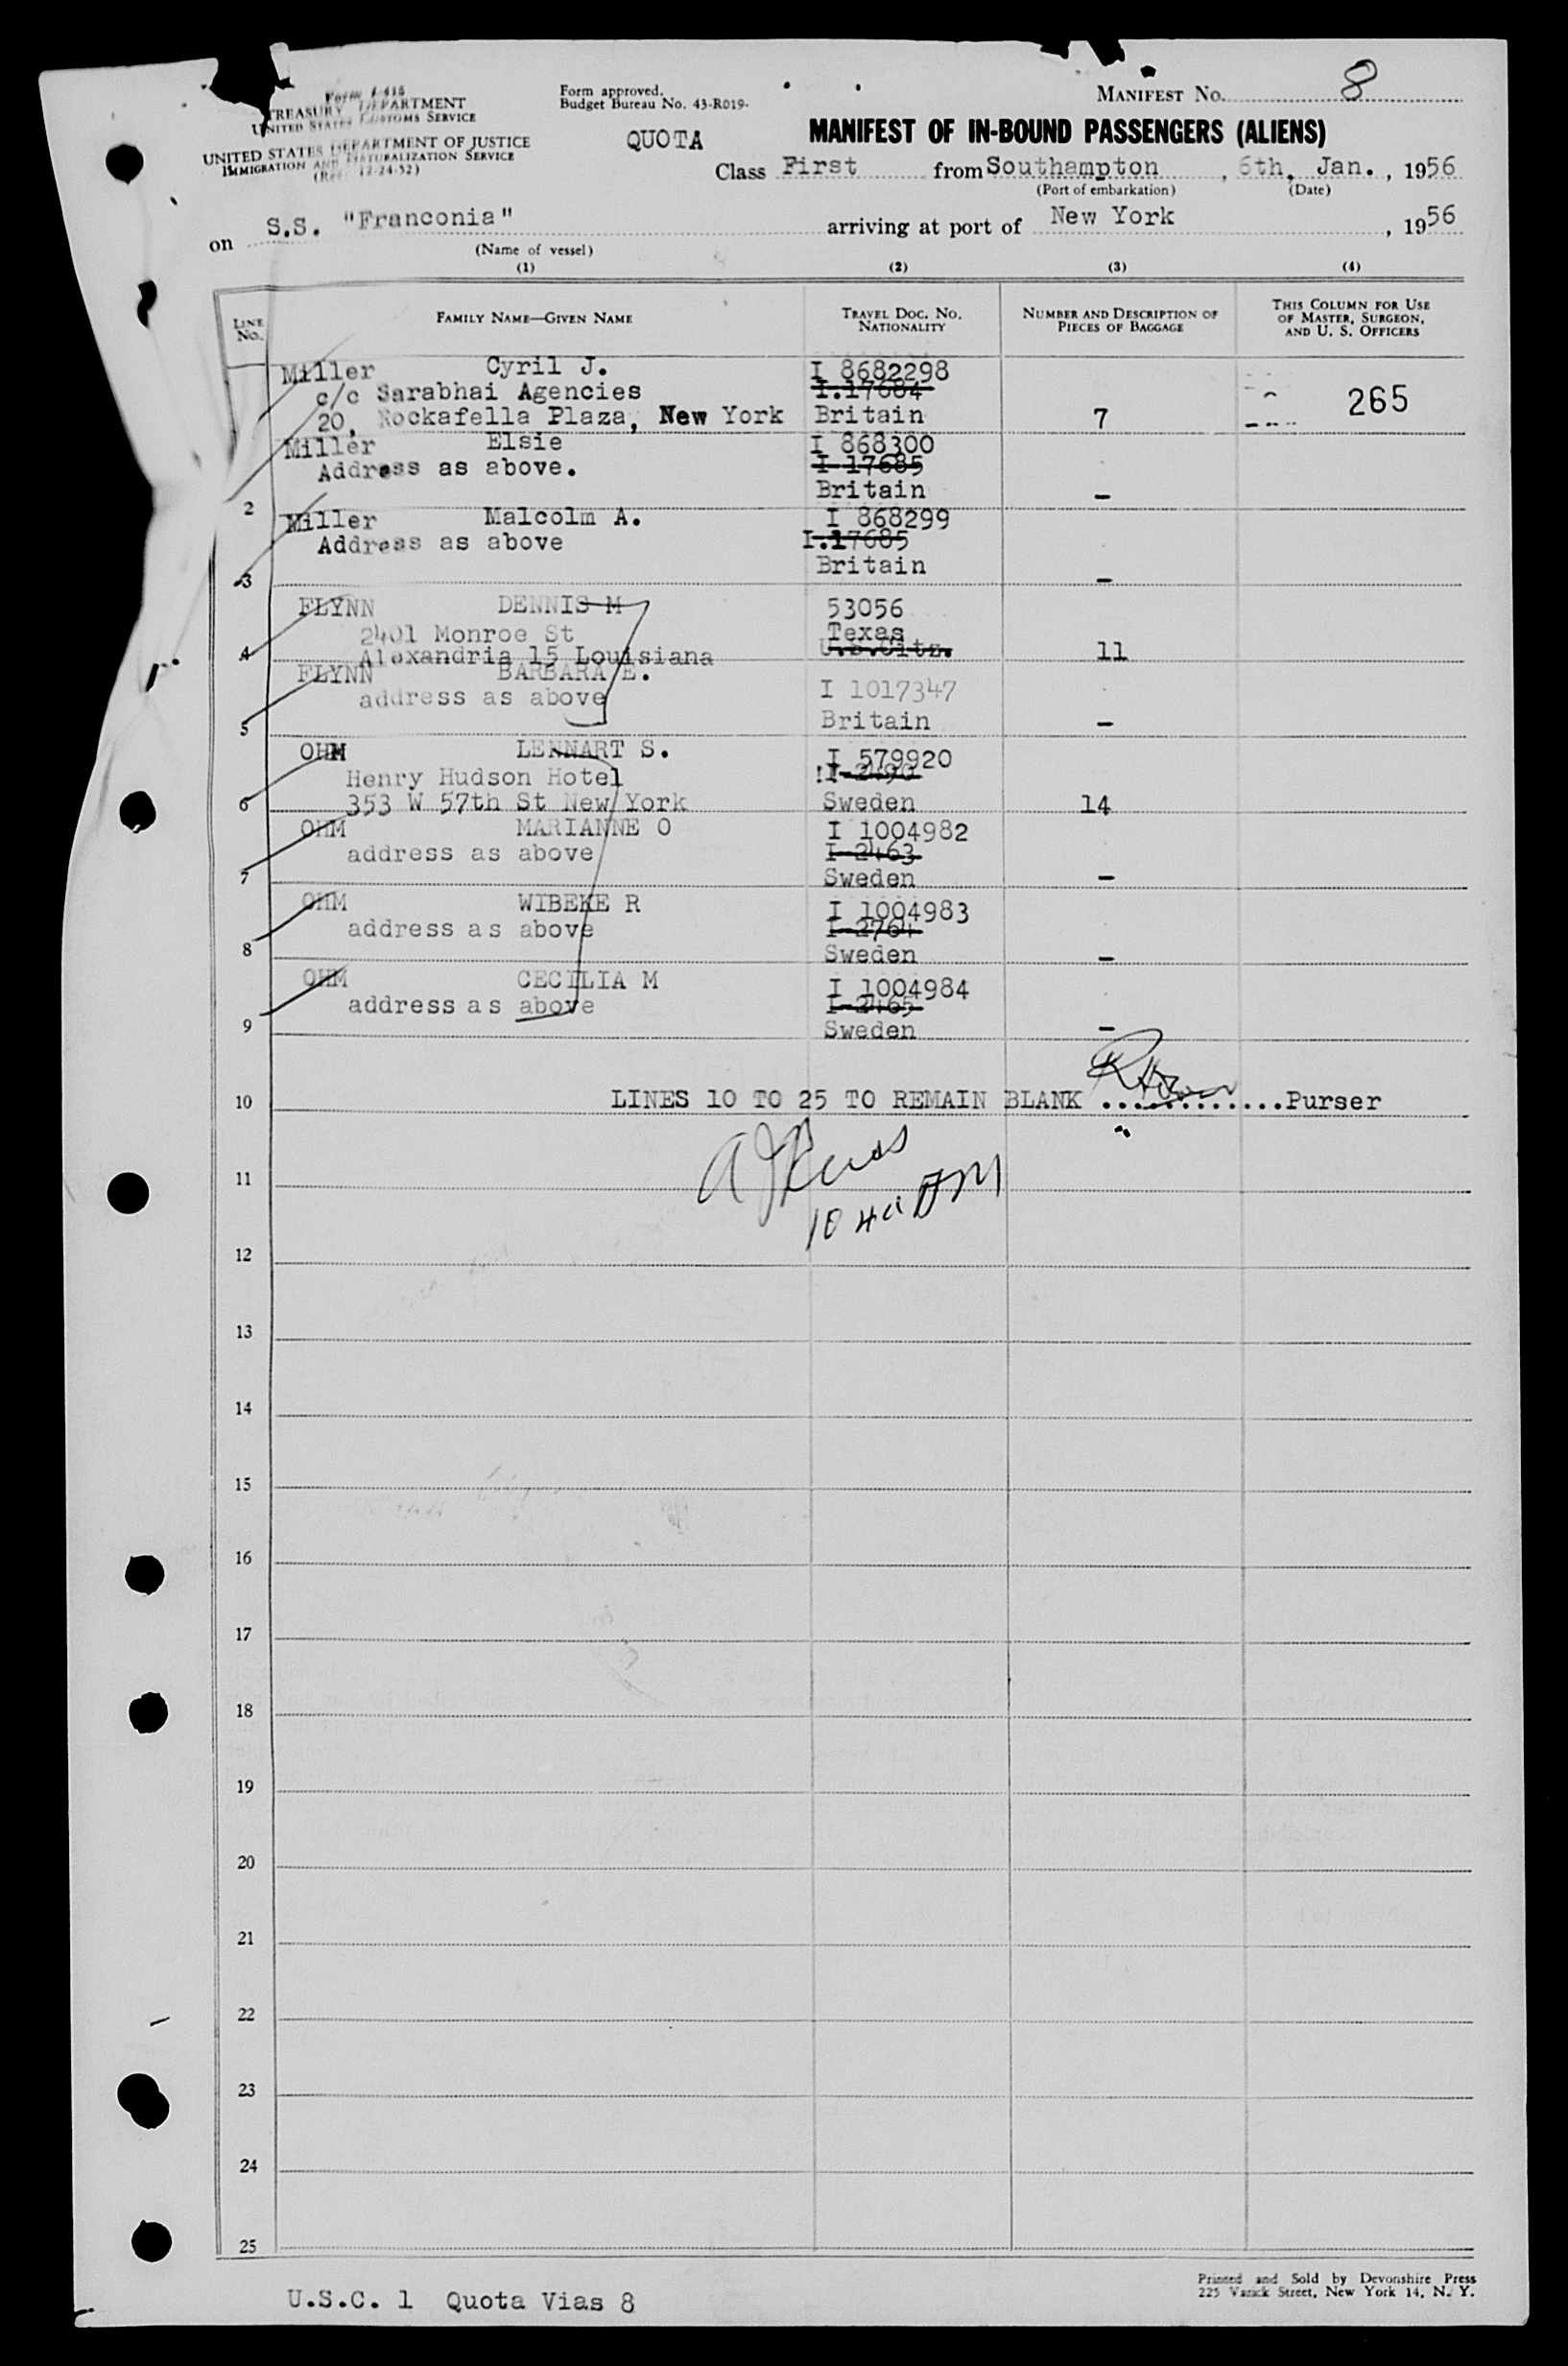 Form I-415
TREASURY DEPARTMENT
UNITED STATES CUSTOMS SERVICE
UNITED STATES DEPARTMENT OF JUSTICE
IMMIGRATION AND NATURALIZATION SERVICE
(Rev. 12-24-52)
Form approved.
Budget Bureau No. 43-R019-
QUOTA
MANIFEST No. 8
MANIFEST OF IN-BOUND PASSENGERS (ALIENS)
Class First from Southampton, 6th, Jan., 1956
(Port of embarkation) (Date)
on S.S. "Franconia" arriving at port of New York, 1956
(Name of vessel)
(1) (2) (3) (4)
LINE NO.
FAMILY NAME—GIVEN NAME
TRAVEL DOC. NO. NATIONALITY
NUMBER AND DESCRIPTION OF PIECES OF BAGGAGE
THIS COLUMN FOR USE OF MASTER, SURGEON, AND U. S. OFFICERS
Miller Cyril J. I 8682298
c/o Sarabhai Agencies I.17684
20, Rockafella Plaza, New York Britain 7 265
Miller Elsie I 868300
Address as above. I 17685
2 Britain –
Miller Malcolm A. I 868299
Address as above I.17685
3 Britain –
FLYNN DENNIS M 53056
2401 Monroe St Texas
4 Alexandria 15 Louisiana U.S.Citz. 11
FLYNN BARBARA E.
address as above I 1017347
5 Britain –
OHM LENNART S. I 579920
Henry Hudson Hotel I-2490
6 353 W 57th St New York Sweden 14
OHM MARIANNE O I 1004982
address as above I-2463
7 Sweden –
OHM WIBEKE R I 1004983
address as above I-2764
8 Sweden –
OHM CECILIA M I 1004984
address as above I-2465
9 Sweden –
10 LINES 10 TO 25 TO REMAIN BLANK ............Purser
11
12
13
14
15
16
17
18
19
20
21
22
23
24
25
U.S.C. 1 Quota Vias 8
Printed and Sold by Devonshire Press
225 Varick Street, New York 14, N. Y.